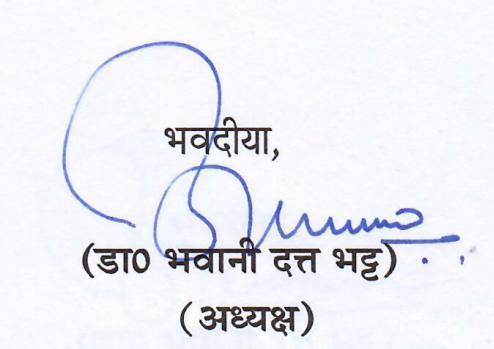 भवदीया,
(डा0 भवानी दत्त भट्ट)
(अध्यक्ष)